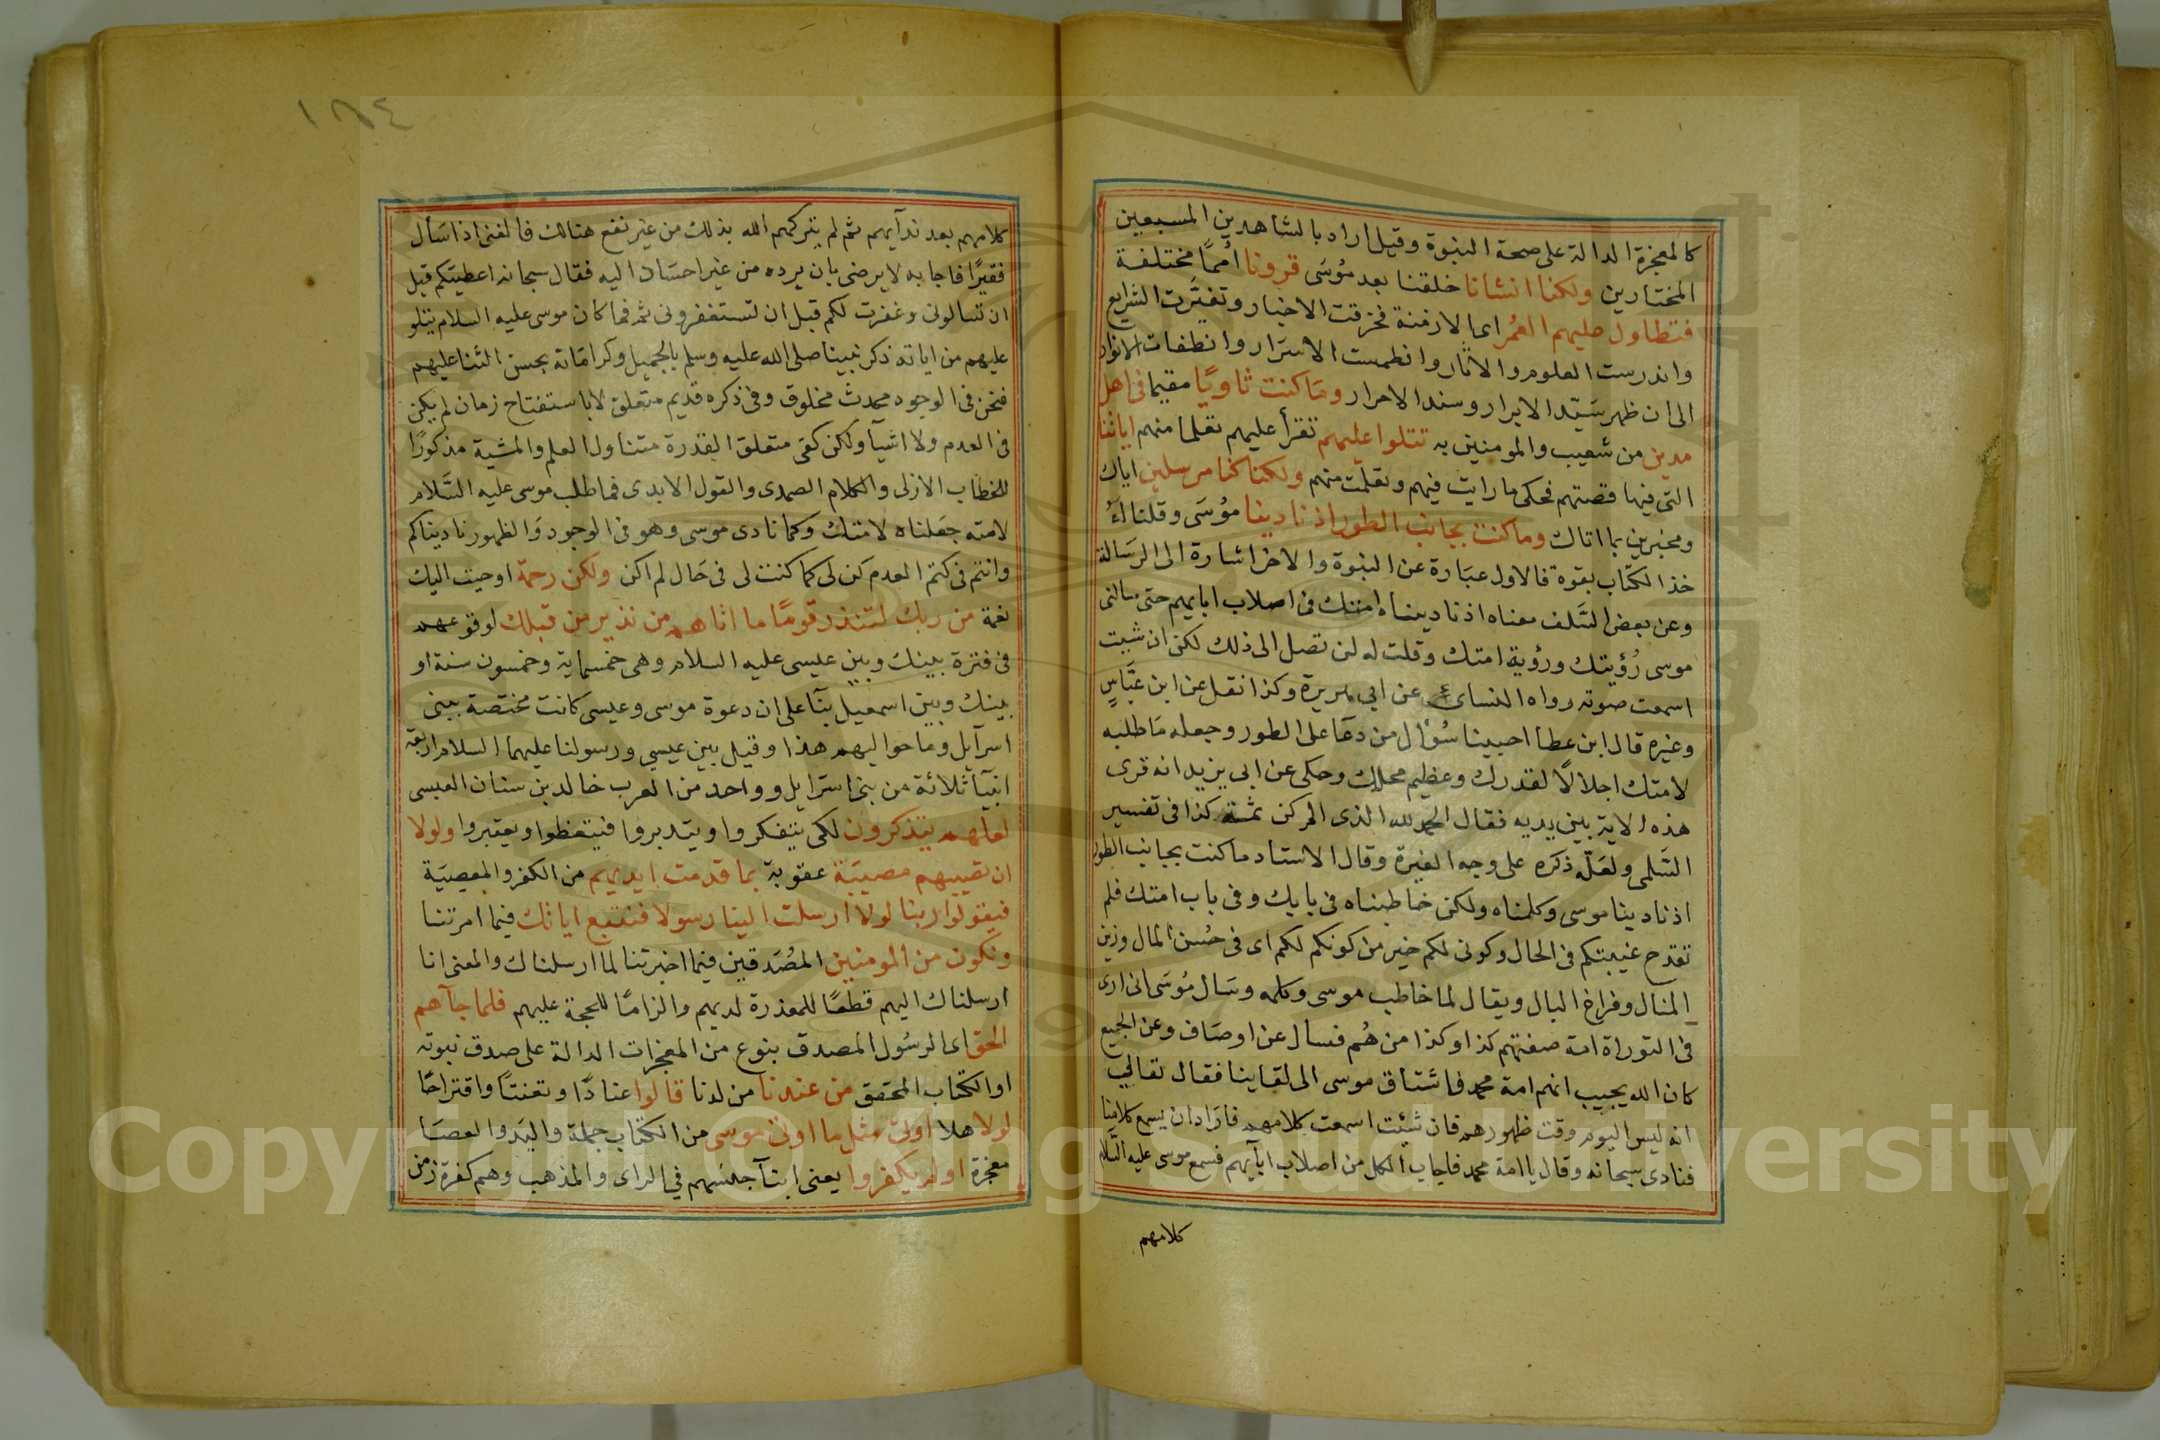 كالمعجزة الدالة على صحة النبوة وقيل اراد بالشاهدين المسبعين
المختارين ولكنا انشأنا خلقنا بعد مُوسَى قرونا اُممًا مختلفة
فتطاول عليهم العُمُر اى الازمنة فخرقت الاخبار وتغيّرت الشرايع
واندرست العلوم والاثار وانطمست الاسرَار وانطفات الانوار
الى ان ظهر سَيّد الابرار وسند الاحرار ومَا كنت ثاويًا مقيما فى اهل
مدين من شعيب والمومنين به تتلوا عليهم تقرأ عليهم تعلما منهم اياتنا
التى فيها قصتهم فحكى ما رايت فيهم وتعلّمت منهم ولكنا كنا مرسلين اياك
ومخبرين بما اتاك وما كنت بجانب الطور اذ نادينا مُوسَى وقلنا لهُ
خذ الكتاب بقوة فالاول عبَارة عن النبوة والاخر اشارة الى الرسَالة
وعن بعض السَّلف معناه اذ نادينا امتك فى اصلاب ابايهم حتى سالنى
موسى رُؤيتك ورؤية امتك وقلت له لن تصل الى ذلك لكن ان شيت
اسمعت صوته رواه النساى عن ابى هريرة وكذا نقل عن ابن عبَّاسٍ
وغيره قال ابن عطا احبينا سُؤال من دعَا على الطور وجعله مَا طلبه
لامتك اجلالًا لقدرك وعظيم محلك وحكى عن ابى يزيد انه قرى
هذه الاية بين يديه فقال الحمد لله الذى لم اكن ثمّة كذا فى تفسير
السَّلمى ولعَلّه ذكره على وجه الغيرة وقال الاستاد ما كنت بجانب الطور
اذ نادينا موسى وكلمناه ولكن خاطبناه فى بابك وفى باب امتك فلم
تقدح غيبتكم فى الحال وكونى لكم خير من كونكم لكم اى فى حُسن المال وزين
المنال وفراغ البال ويقال لما خاطب موسى وكلمه وسَال مُوسَى انى ارى
فى التوراة امة صفتهم كذا وكذا من هُم فسال عن اوصَاف وعن الجميع
كان الله يجيب انهم امة محمد فاشتاق موسى الى لقاينا فقال تعالى
انه ليس اليوم وقت ظهورهم فان شئت اسمعت كلامهم فارَاد ان يسمع كلامنا
فنادى سبحانه وقال يا امة محمد فاجاب الكل من اصلاب ابآيهم فسمع موسى عليه السّلام
كلامهم
١٨٤
كلامهم بعد ندآيهم ثم لم يتركهم الله بذلك من غير نفع هنالك فالغنى اذا سَأل
فقيرًا فاجابه لا يرضى بان يرده من غير احسَان اليه فقال سبحانه اعطيتكم قبل
ان تسالونى وغفرت لكم قبل ان تستغفرونى ثم فما كان موسى عليه السلام يتلو
عليهم من اياته ذكر نبينا صلى الله عليه وسلم بالجميل وكرامَاته بحسن الثنا عليهم
فنحن فى الوجود محدث مخلوق وفى ذكره قديم متعلق لا باستفتاح زمان لم يكن
فى العدم ولا اشيآ ولكن كفى متعلق القدرة متناول العلم والمشية مذكورًا
للخطاب الازلى والكلام الصمدى والقول الابدى فما طلب موسى عليه السَّلام
لامته جعَلناه لامتك وكما نادى موسى وهو فى الوجود وَالظهور ناديناكم
وانتم فى كتم العدم كن لى كما كنت لى فى حَال لم اكن ولكن رحمة اوحيت اليك
نعمة من ربك لتنذر قومًا ما اتاهم من نذير من قبلك لوقوعهم
فى فترة بينك وبين عليسى عليه السلام وهى خمسماية وخمسون سنة او
بينك وبين اسمعيل بنآ على ان دعوة موسى وعيسى كانت مختصة ببنى
اسرآيل وما حواليهم هذا وقيل بين عيسي ورسولنا عليهما السلام اربعة
انبيآ ثلاثة من بنى اسرَايل وواحد من العرب خالد بن سنان العبسى
لعلهم يتذكرون لكى يتفكروا ويتدبروا فيتعظوا ويعتبروا ولولا
ان تصيبهم مصيبَة عقوبة بما قدمت ايديهم من الكفر والمعصيَة
فيقولوا ربنا لولا ارسلت الينا رسولا فنتبع اياتك فيما امرتنا
ونكون من المومنين المصُدقين فيما اخبرتنا لما ارسلناك والمعنى انا
ارسلناك اليهم قطعًا للمعذرة لديهم والزامًا للحجة عليهم فلما جآهم
الحق اى الرسُول المصدق بنوع من المعجزات الدالة على صدق نبوته
او الكتاب المحقق من عندنا من لدنا قالوا عنادًا وتعنتًا واقتراحًا
لولا هلا اوتى مثل ما اوتى موسى من الكتاب جملة واليَد والعصَا
معجزة اولم يكفروا يعنى ابنآ جنسهم في الراى والمذهب وهم كفرة زمن
Copyright © King Saud University